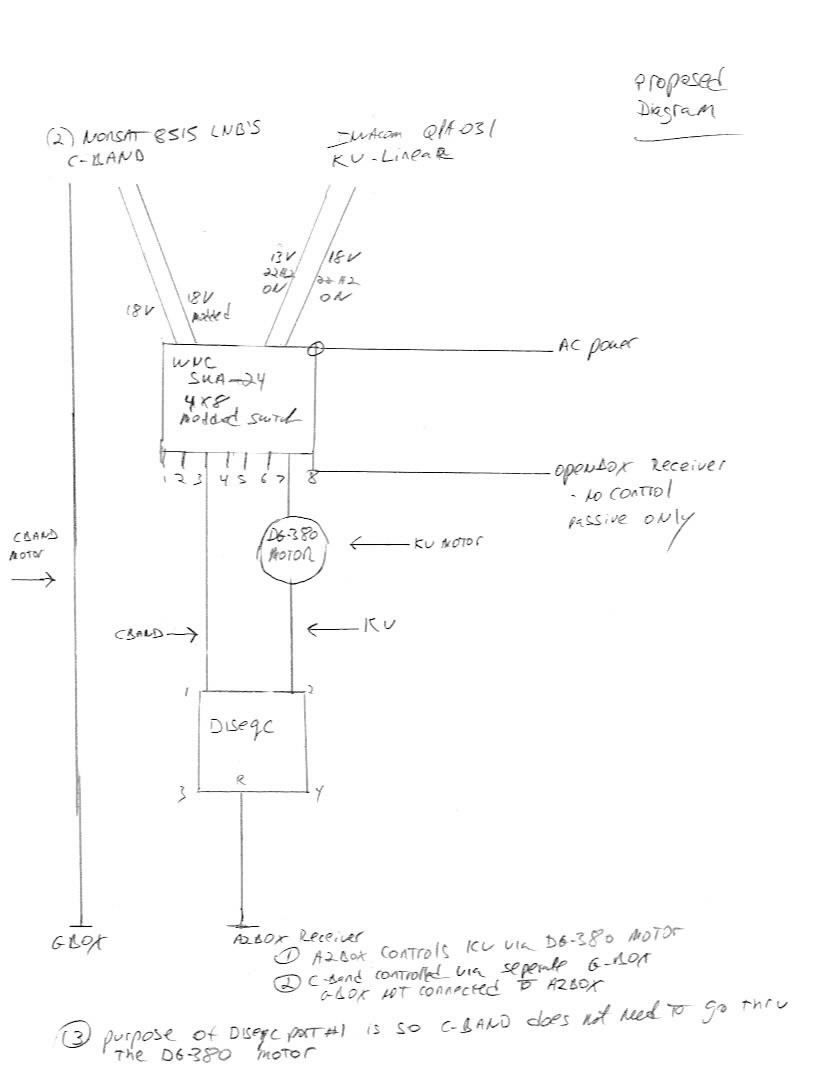 Proposed
Diagram
(2) NORSAT 8515 LNB'S
C-BAND
INVAcom QPH-031
KU-LineaR
13V
22HZ
ON
18V
22HZ
ON
18V
18V
Modded
AC power
WNC
SWA-24
4X8
Modded switch
1 2 3 4 5 6 7 8
OpenBox Receiver
- NO CONTROL
passive ONLY
DG-380
MOTOR
KU MOTOR
CBAND
MOTOR
CBAND
KU
1 2
Diseqc
R
3 4
GBOX
A2BOX Receiver
① A2Box Controls KU via DG-380 MOTOR
② C-Band controlled via seperate G-BOX
GBOX NOT connected to A2BOX
③ purpose of Diseqc port #1 is so C-BAND does not need to go thru
The DG-380 motor